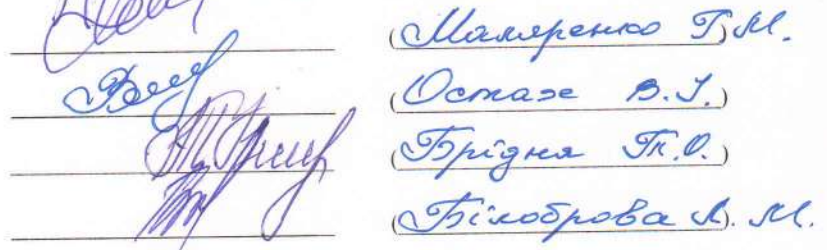 (Маляренко Г.М.)
(Остах В.І.)
(Брідня Т.О.)
(Білоброва Л.М.)